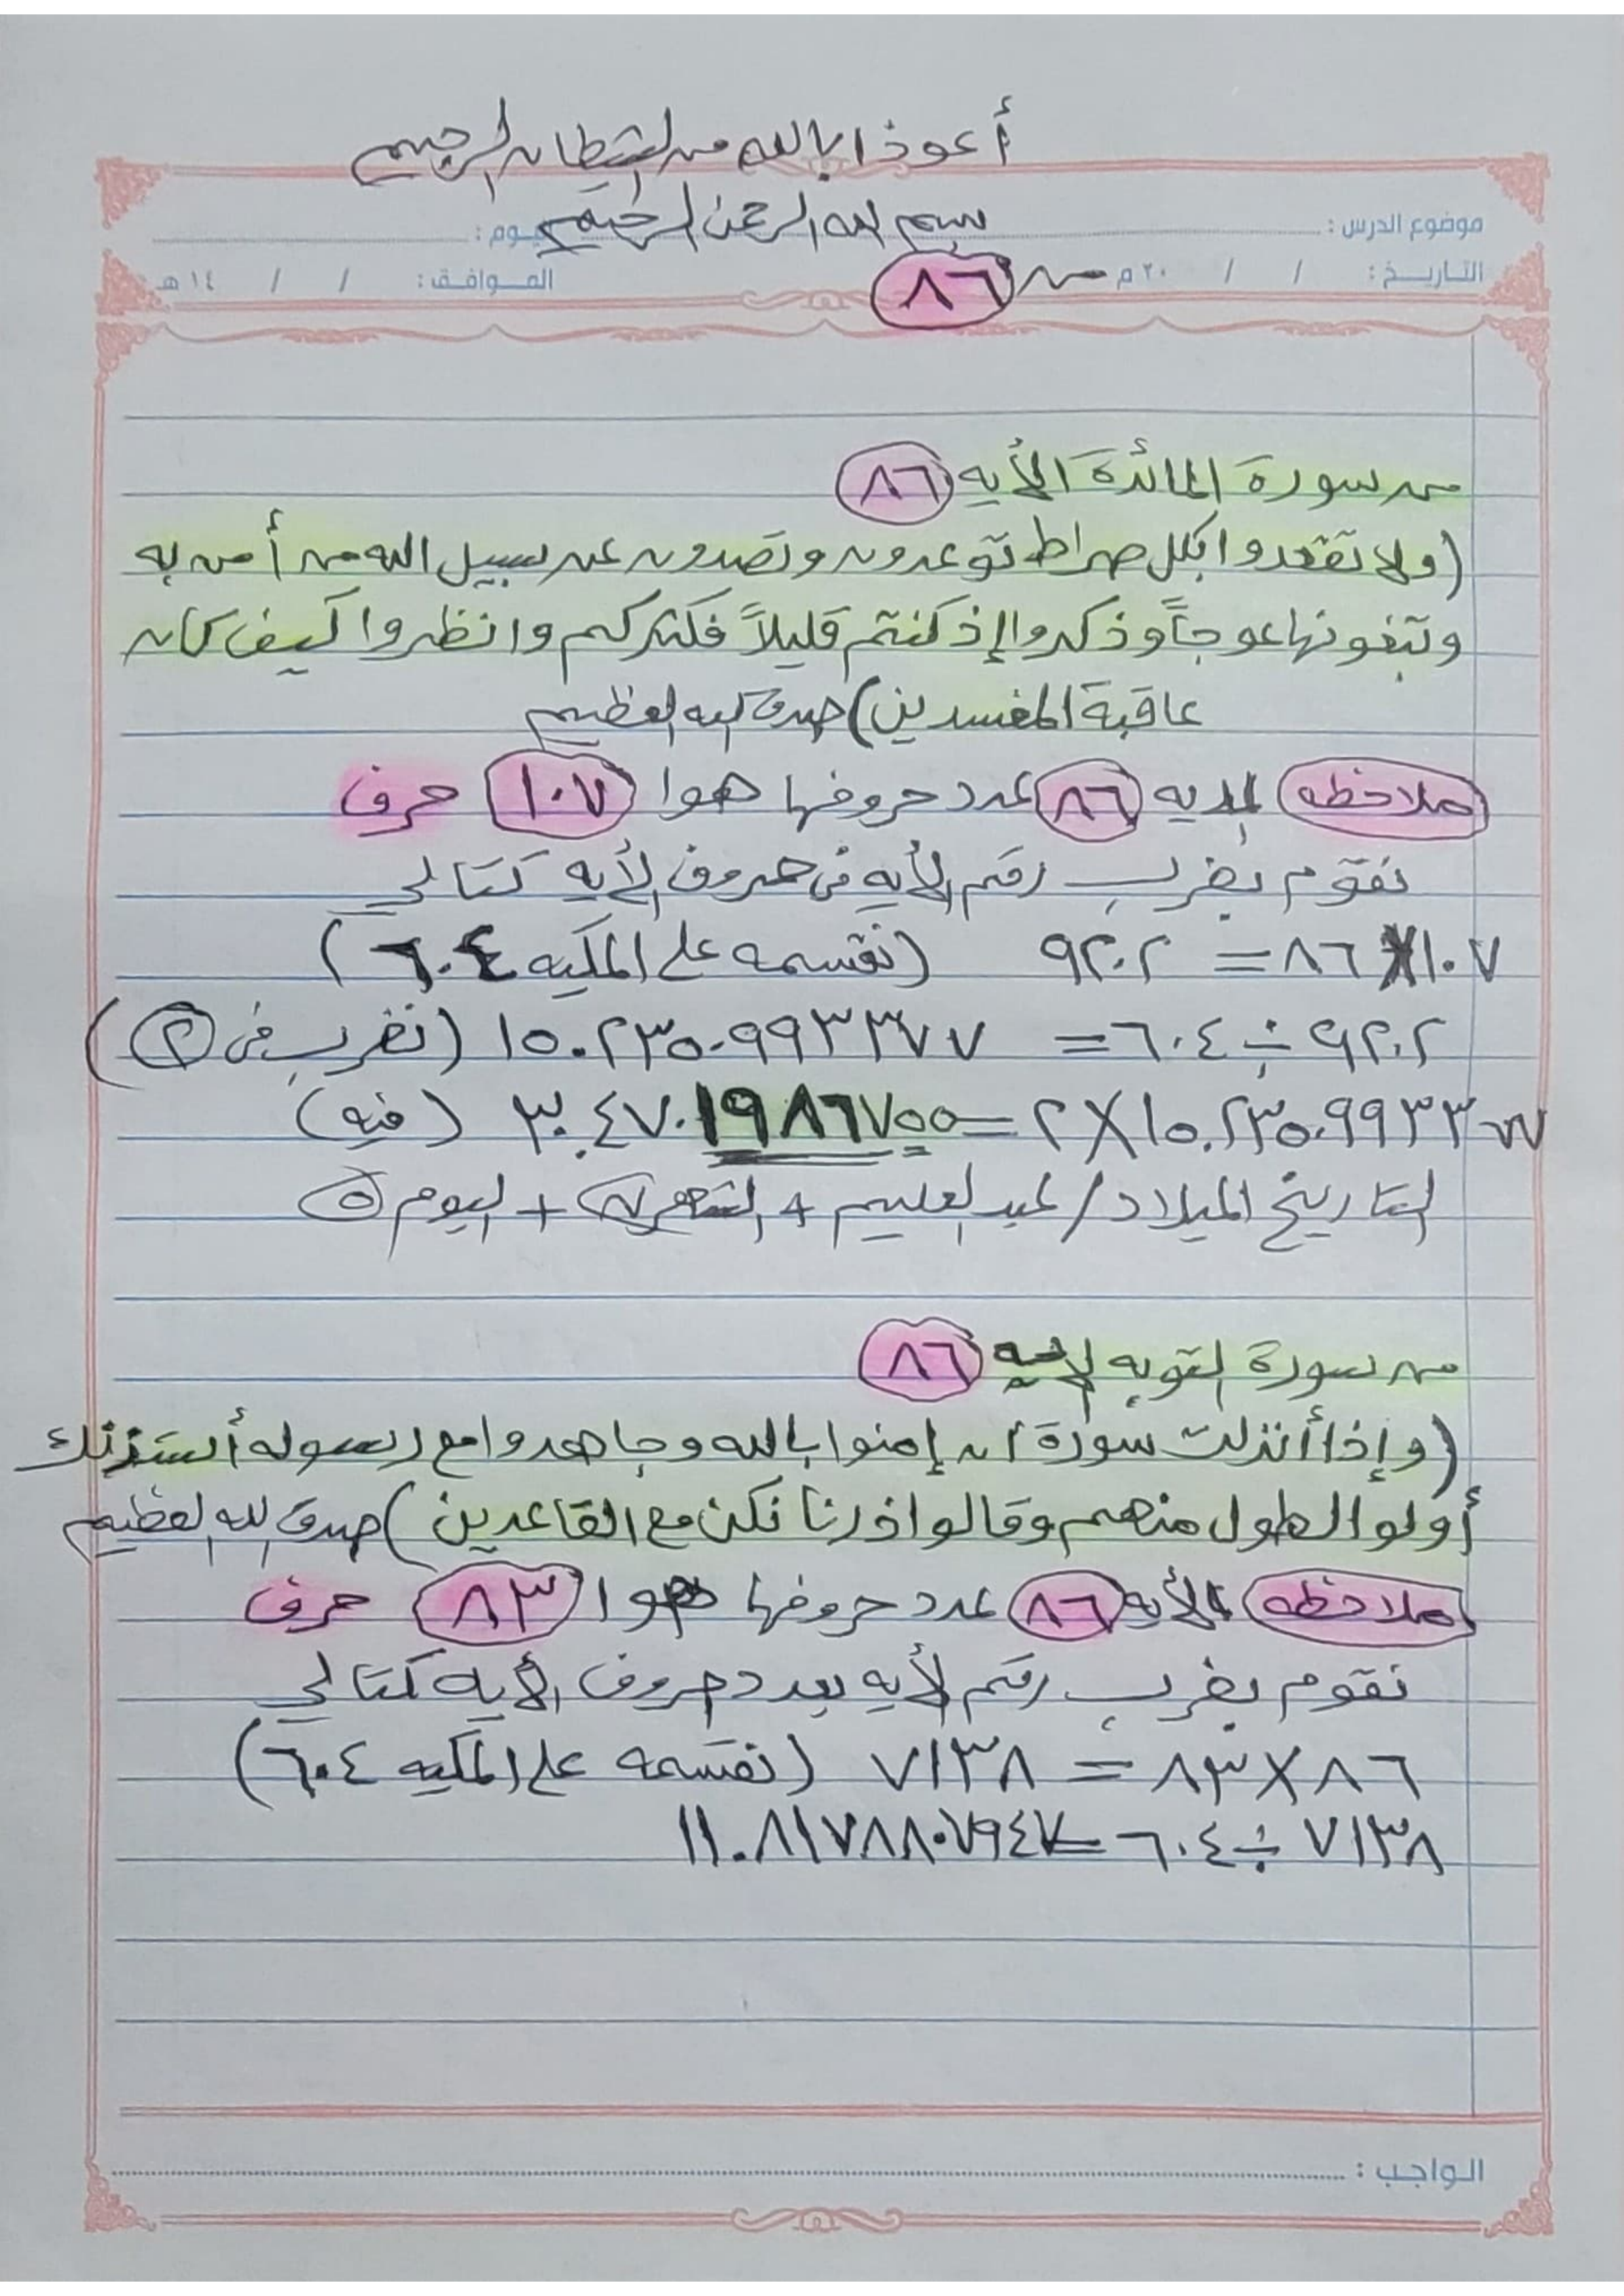 أعوذ ا بالله من الشيطان الرجيم
بسم الله الرحمن الرحيم
موضوع الدرس : اليوم :
التاريـــخ : / / ٢٠ م الموافـق : / / ١٤ هـ
من ٨٦
من سورة المائدة الأيه ٨٦
(ولا تقعدوا بكل صراط توعدون وتصدون عن سبيل الله من أمن به
وتبغونها عوجاً وذكروا إذ كنتم قليلاً فكثركم وانظروا كيف كان
عاقبة المفسدين) صدق الله العظيم
ملاحظه الايه ٨٦ عدد حروفها هوا ١٠٧ حرف
نقوم بضرب رقم الأيه في حروف الأيه كتالي
١٠٧ X ٨٦ = ٩٢٠٢ (نقسمه على المكيه ٦٠٤)
٩٢٠٢ ÷ ٦٠٤ = ١٥.٢٣٥٠٩٩٣٣٧٧ (نضرب في ٢)
١٥.٢٣٥٠٩٩٣٣٧٧ X ٢ = ٣٠.٤٧٠١٩٨٦٧٥٥ (فيه)
التاريخ الميلاد / لعبد العليم + الشهر ٧ + اليوم ٥
من سورة التوبه الايه ٨٦
(وإذا أنزلت سورة ان إمنوا بالله وجاهدوا مع رسوله أستذنك
أولوا الطول منهم وقالوا ذرنا نكن مع القاعدين) صدق الله العظيم
ملاحظه الأيه ٨٦ عدد حروفها هوا ٨٣ حرف
نقوم بضرب رقم الأيه بعدد حروف الأيه كتالي
٨٦ X ٨٣ = ٧١٣٨ (نقسمه على المكيه ٦٠٤)
٧١٣٨ ÷ ٦٠٤ = ١١.٨١٧٨٨٠٧٩٤٧
الـواجـب :